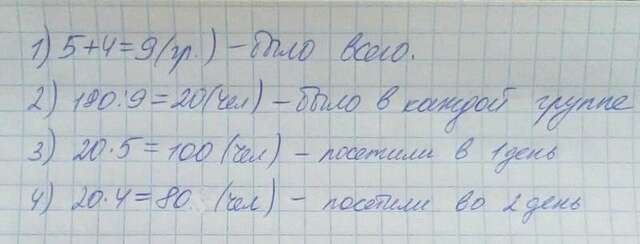 1) 5+4=9(гр.) – было всего.
2) 180:9=20(чел) – было в каждой группе
3) 20·5=100(чел) – посетили в 1 день
4) 20·4=80 (чел) – посетили во 2 день